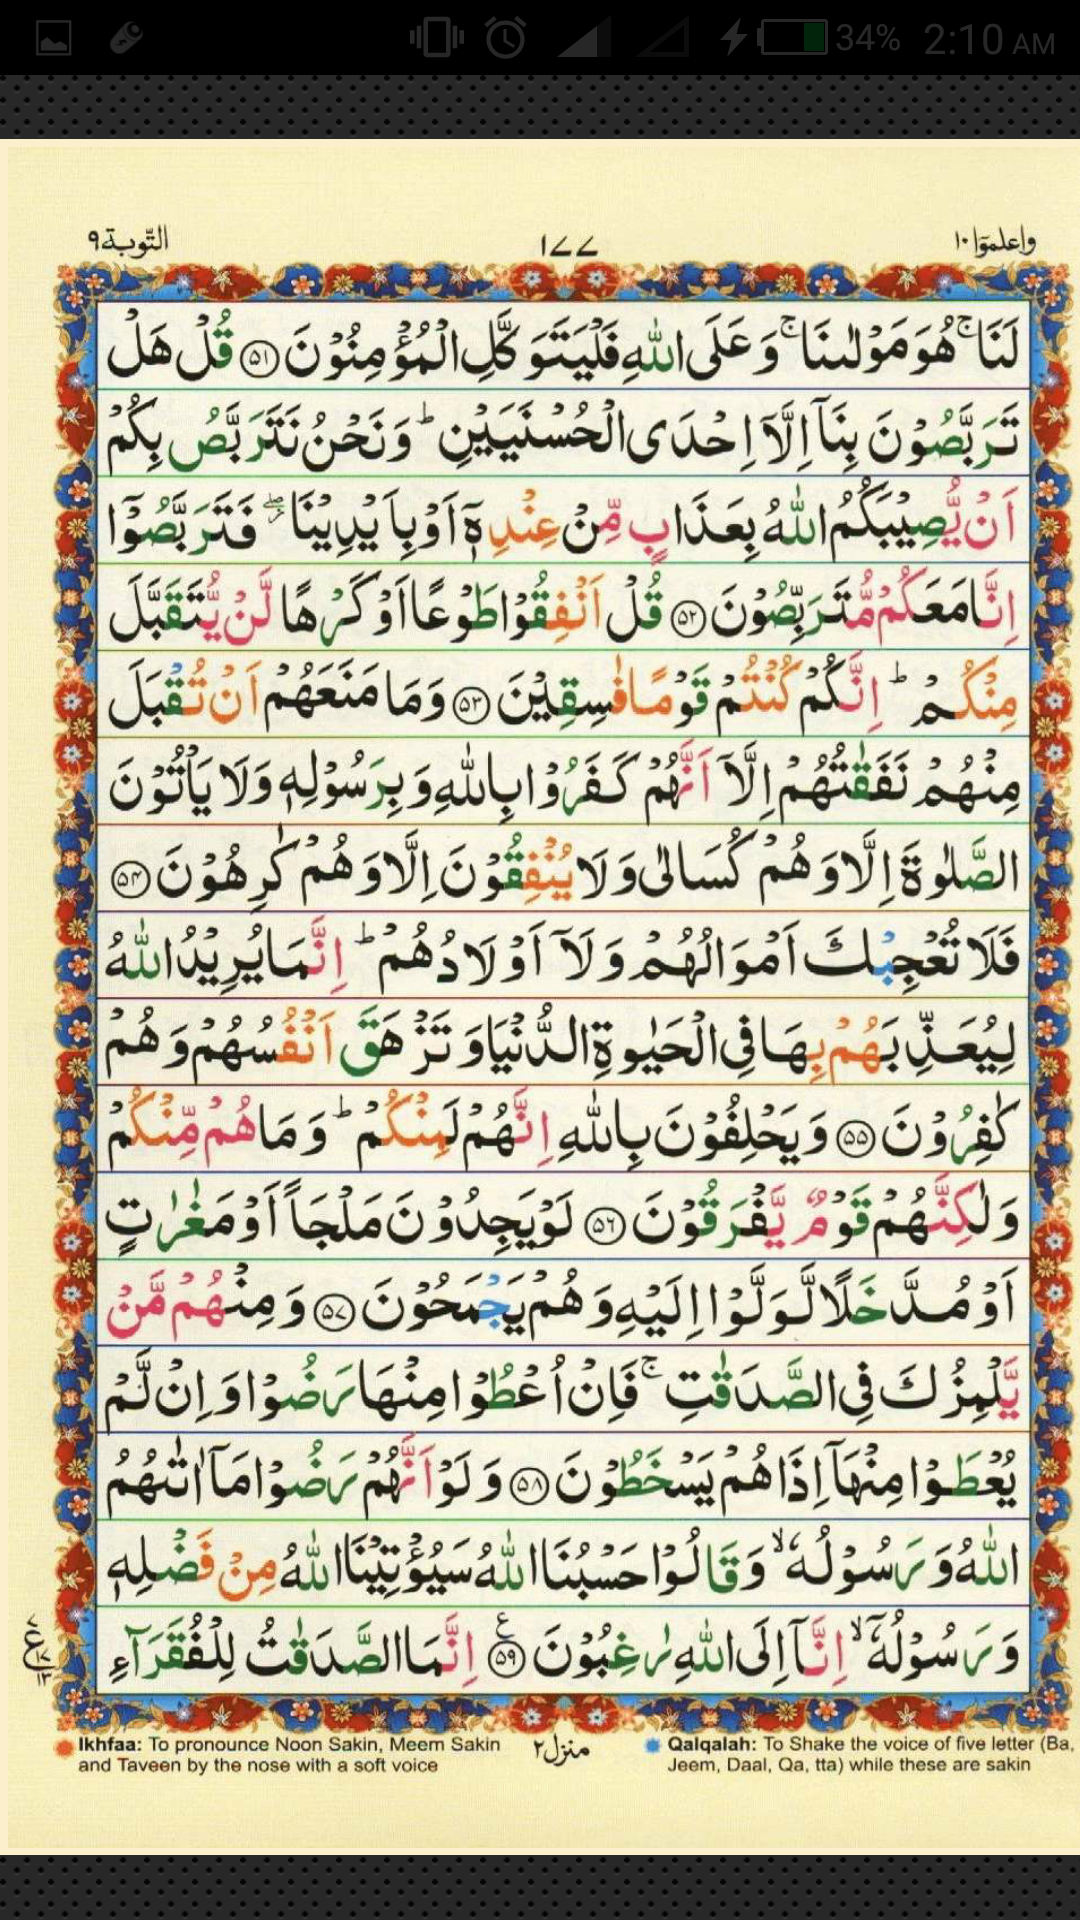 34% 2:10 AM
التّوبة ۹
۱۷۷
واعلموٓا ۱۰
لَنَا ۚ هُوَ مَوْلٰىنَا ۚ وَعَلَى اللّٰهِ فَلْيَتَوَكَّلِ الْمُؤْمِنُوْنَ ﴿۵۱﴾ قُلْ هَلْ
تَرَبَّصُوْنَ بِنَآ اِلَّآ اِحْدَى الْحُسْنَيَيْنِ ؕ وَنَحْنُ نَتَرَبَّصُ بِكُمْ
اَنْ يُّصِيْبَكُمُ اللّٰهُ بِعَذَابٍ مِّنْ عِنْدِهٖٓ اَوْ بِاَيْدِيْنَا ۖؗ فَتَرَبَّصُوْٓا
اِنَّا مَعَكُمْ مُّتَرَبِّصُوْنَ ﴿۵۲﴾ قُلْ اَنْفِقُوْا طَوْعًا اَوْ كَرْهًا لَّنْ يُّتَقَبَّلَ
مِنْكُمْ ؕ اِنَّكُمْ كُنْتُمْ قَوْمًا فٰسِقِيْنَ ﴿۵۳﴾ وَمَا مَنَعَهُمْ اَنْ تُقْبَلَ
مِنْهُمْ نَفَقٰتُهُمْ اِلَّآ اَنَّهُمْ كَفَرُوْا بِاللّٰهِ وَبِرَسُوْلِهٖ وَلَا يَاْتُوْنَ
الصَّلٰوةَ اِلَّا وَهُمْ كُسَالٰى وَلَا يُنْفِقُوْنَ اِلَّا وَهُمْ كٰرِهُوْنَ ﴿۵۴﴾
فَلَا تُعْجِبْكَ اَمْوَالُهُمْ وَلَآ اَوْلَادُهُمْ ؕ اِنَّمَا يُرِيْدُ اللّٰهُ
لِيُعَذِّبَهُمْ بِهَا فِى الْحَيٰوةِ الدُّنْيَا وَتَزْهَقَ اَنْفُسُهُمْ وَهُمْ
كٰفِرُوْنَ ﴿۵۵﴾ وَيَحْلِفُوْنَ بِاللّٰهِ اِنَّهُمْ لَمِنْكُمْ ؕ وَمَا هُمْ مِّنْكُمْ
وَلٰكِنَّهُمْ قَوْمٌ يَّفْرَقُوْنَ ﴿۵۶﴾ لَوْ يَجِدُوْنَ مَلْجَاً اَوْ مَغٰرٰتٍ
اَوْ مُدَّخَلًا لَّوَلَّوْا اِلَيْهِ وَهُمْ يَجْمَحُوْنَ ﴿۵۷﴾ وَمِنْهُمْ مَّنْ
يَّلْمِزُكَ فِى الصَّدَقٰتِ ۚ فَاِنْ اُعْطُوْا مِنْهَا رَضُوْا وَاِنْ لَّمْ
يُعْطَوْا مِنْهَآ اِذَا هُمْ يَسْخَطُوْنَ ﴿۵۸﴾ وَلَوْ اَنَّهُمْ رَضُوْا مَآ اٰتٰىهُمُ
اللّٰهُ وَرَسُوْلُهٗ ۙ وَقَالُوْا حَسْبُنَا اللّٰهُ سَيُؤْتِيْنَا اللّٰهُ مِنْ فَضْلِهٖ
وَرَسُوْلُهٗٓ ۙ اِنَّآ اِلَى اللّٰهِ رٰغِبُوْنَ ﴿۵۹﴾ اِنَّمَا الصَّدَقٰتُ لِلْفُقَرَآءِ
ع
Ikhfaa: To pronounce Noon Sakin, Meem Sakin
and Taveen by the nose with a soft voice
منزل۲
Qalqalah: To Shake the voice of five letter (Ba,
Jeem, Daal, Qa, tta) while these are sakin